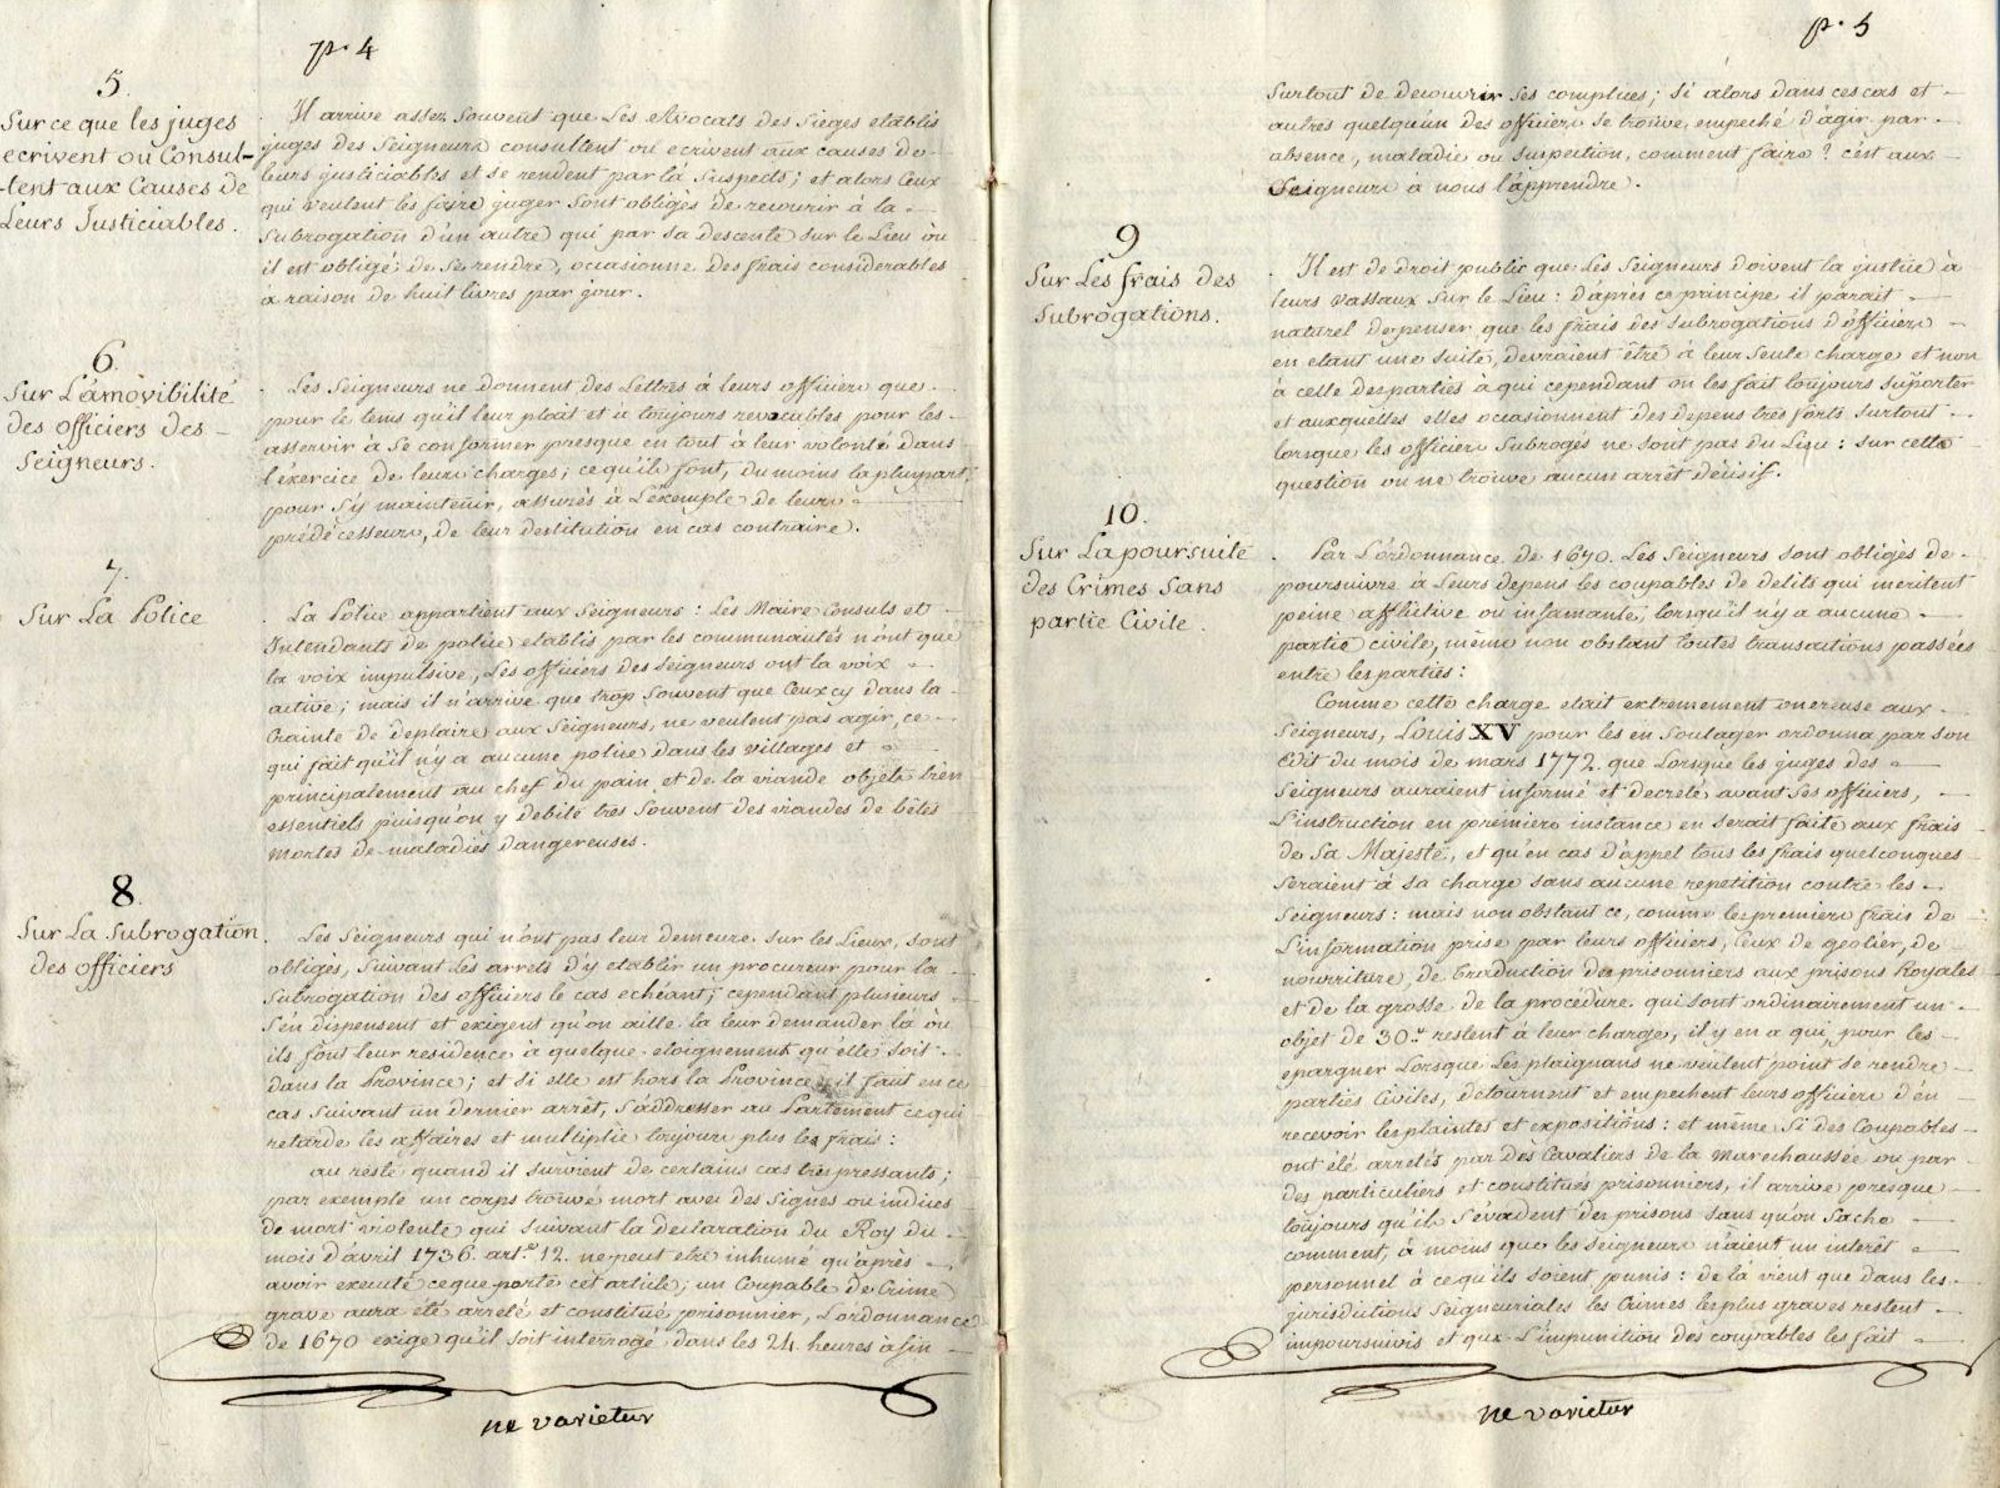 p. 4
5.
Sur ce que les juges
ecrivent ou Consul-
-tent aux Causes de
Leurs Justiciables.
Il arrive assez souvent que Les Avocats des Sièges etablis
juges des Seigneurs consultent ou ecrivent aux causes de
leurs justiciables et se rendent par là suspects; et alors Ceux
qui veulent les faire juger sont obligés de recourir à la
subrogation d'un autre qui par sa descente sur le Lieu où
il est obligé de se rendre, occasionne des frais considerables
à raison de huit livres par jour.
6.
Sur L'amovibilité
des officiers des
Seigneurs.
Les Seigneurs ne donnent des Lettres à leurs officiers que
pour le tems qu'il leur plait et à toujours revocables pour les
asservir à se conformer presque en tout à leur volonté dans
l'exercice de leurs charges; ce qu'ils font, du moins la pluspart,
pour s'y maintenir, assurés à L'exemple de leurs
prédécesseurs, de leur destitution en cas contraire.
7.
Sur La Police
La Police appartient aux Seigneurs: Les Maire Consuls et
Intendants de police etablis par les communautés n'ont que
la voix impulsive, Les officiers des seigneurs ont la voix
active; mais il n'arrive que trop souvent que Ceux cy dans la
Crainte de deplaire aux Seigneurs, ne veulent pas agir, ce
qui fait qu'il n'y a aucune police dans les villages et
principalement au chef du pain et de la viande objets bien
essentiels puisqu'on y debite très souvent des viandes de bêtes
mortes de maladies dangereuses.
8.
Sur La Subrogation
des officiers
Les Seigneurs qui n'ont pas leur demeure sur les Lieux, sont
obligés, suivant Les arrets d'y etablir un procureur pour la
subrogation des officiers le cas echéant; cependant plusieurs
s'en dispensent et exigent qu'on aille la leur demander là où
ils font leur residence à quelque eloignement qu'elle soit
dans la Province; et si elle est hors la Province, il faut en ce
cas suivant un dernier arrêt, s'addresser au Parlement ce qui
retarde les affaires et multiplie toujours plus les frais:
au reste quand il survient de certains cas très pressants;
par exemple un corps trouvé mort avec des signes ou indices
de mort violente qui suivant la declaration du Roy du
mois d'avril 1736. art.e 12. ne peut etre inhumé qu'après
avoir executé ce que porte cet article; un Coupable de Crime
grave aura été arreté et constitué prisonnier, L'ordonnance
de 1670 exige qu'il soit interrogé dans les 24 heures à fin
ne varietur
p. 5
surtout de decouvrir ses complices; si alors dans ces cas et
autres quelqu'un des officiers se trouve empeché d'agir par
absence, maladie ou suspection, comment faire? c'est aux
Seigneurs à nous l'apprendre.
9
Sur Les frais des
Subrogations.
Il est de droit public que Les Seigneurs doivent la justice à
leurs vassaux sur le Lieu: d'après ce principe il parait
naturel de penser que les frais des subrogations d'officiers
en etant une suite, devraient être à leur seule charge et non
à celle des parties à qui cependant on les fait toujours suporter
et auxquelles elles occasionnent des depens très forts surtout
lorsque les officiers subrogés ne sont pas du Lieu: sur cette
question on ne trouve aucun arrêt décisif.
10.
Sur La poursuite
des Crimes Sans
partie Civile.
Par L'ordonnance de 1670. Les Seigneurs sont obligés de
poursuivre à leurs depens les coupables de delits qui meritent
peine afflictive ou infamante, lorsqu'il n'y a aucune
partie civile, même non obstant toutes transactions passées
entre les parties:
Comme cette charge etait extremement onereuse aux
Seigneurs, Louis XV pour les en soulager ordonna par son
Edit du mois de mars 1772. que Lorsque les juges des
Seigneurs auraient informé et decreté avant ses officiers,
L'instruction en premiere instance en serait faite aux frais
de Sa Majesté, et qu'en cas d'appel tous les frais quelconques
seraient à sa charge sans aucune repetition contre les
Seigneurs: mais non obstant ce, comme les premiers frais de
L'information prise par leurs officiers, Ceux de geolier, de
nourriture, de traduction des prisonniers aux prisons Royales
et de la grosse de la procédure qui sont ordinairement un
objet de 30 # restent à leur charge, il y en a qui, pour les
epargner Lorsque Les plaignans ne veulent point se rendre
parties Civiles, détournent et empechent leurs officiers d'en
recevoir les plaintes et expositions: et même si des Coupables
ont été arretés par des Cavaliers de la Marechaussée ou par
des particuliers et constitués prisonniers, il arrive presque
toujours qu'ils s'évadent des prisons sans qu'on sache
comment, à moins que les Seigneurs n'aient un interêt
personnel à ce qu'ils soient punis: de là vient que dans les
jurisdictions Seigneuriales les Crimes les plus graves restent
impoursuivis et que L'impunition des coupables les fait
ne varietur